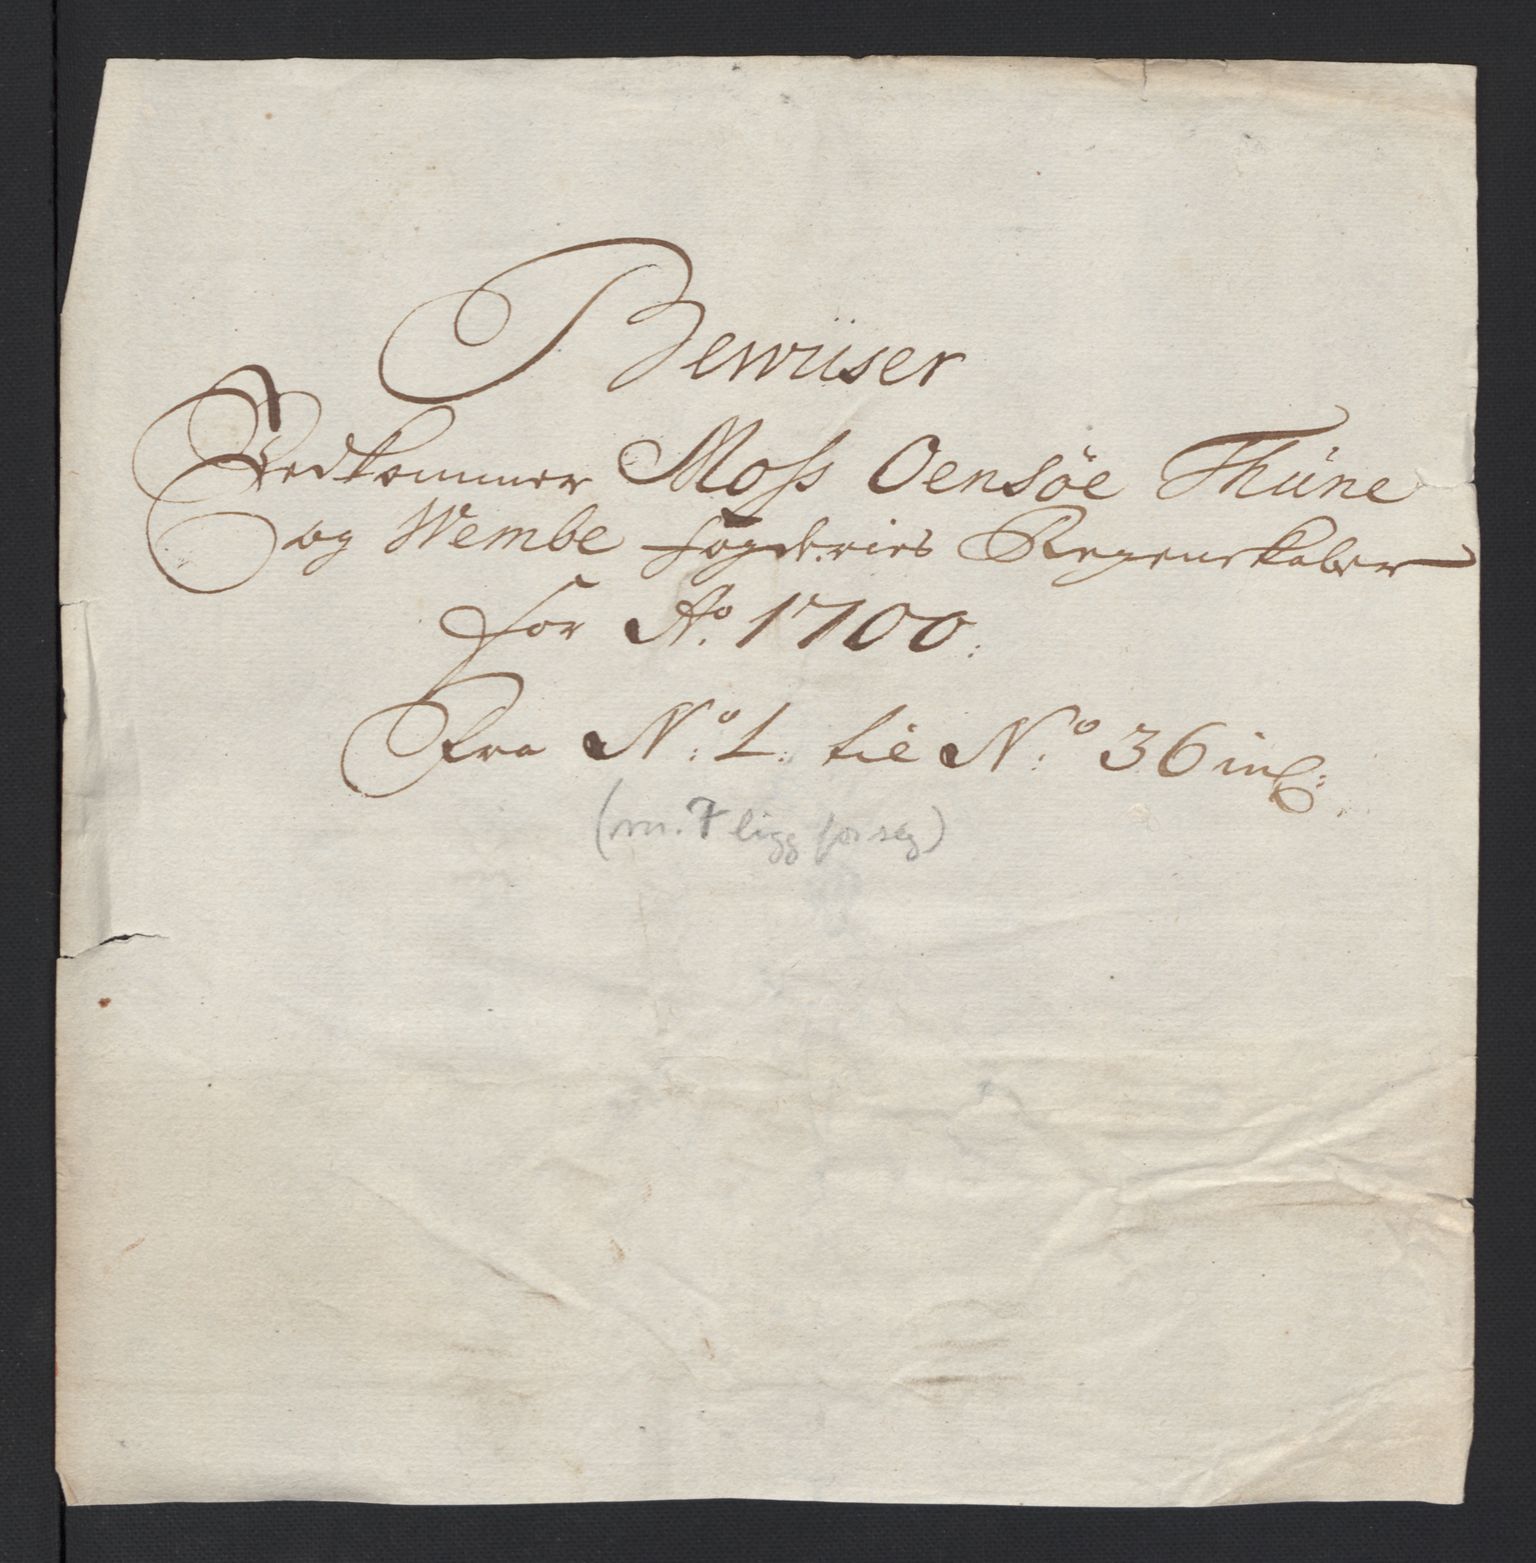 Bewiiser
Vedkommer Moss Oensöe Thüne
og Wembe fogderies Regenskaber
for Ao. 1700.
Fra No: 1. til No: 36 incl:
(nr. 7 ligg for seg)